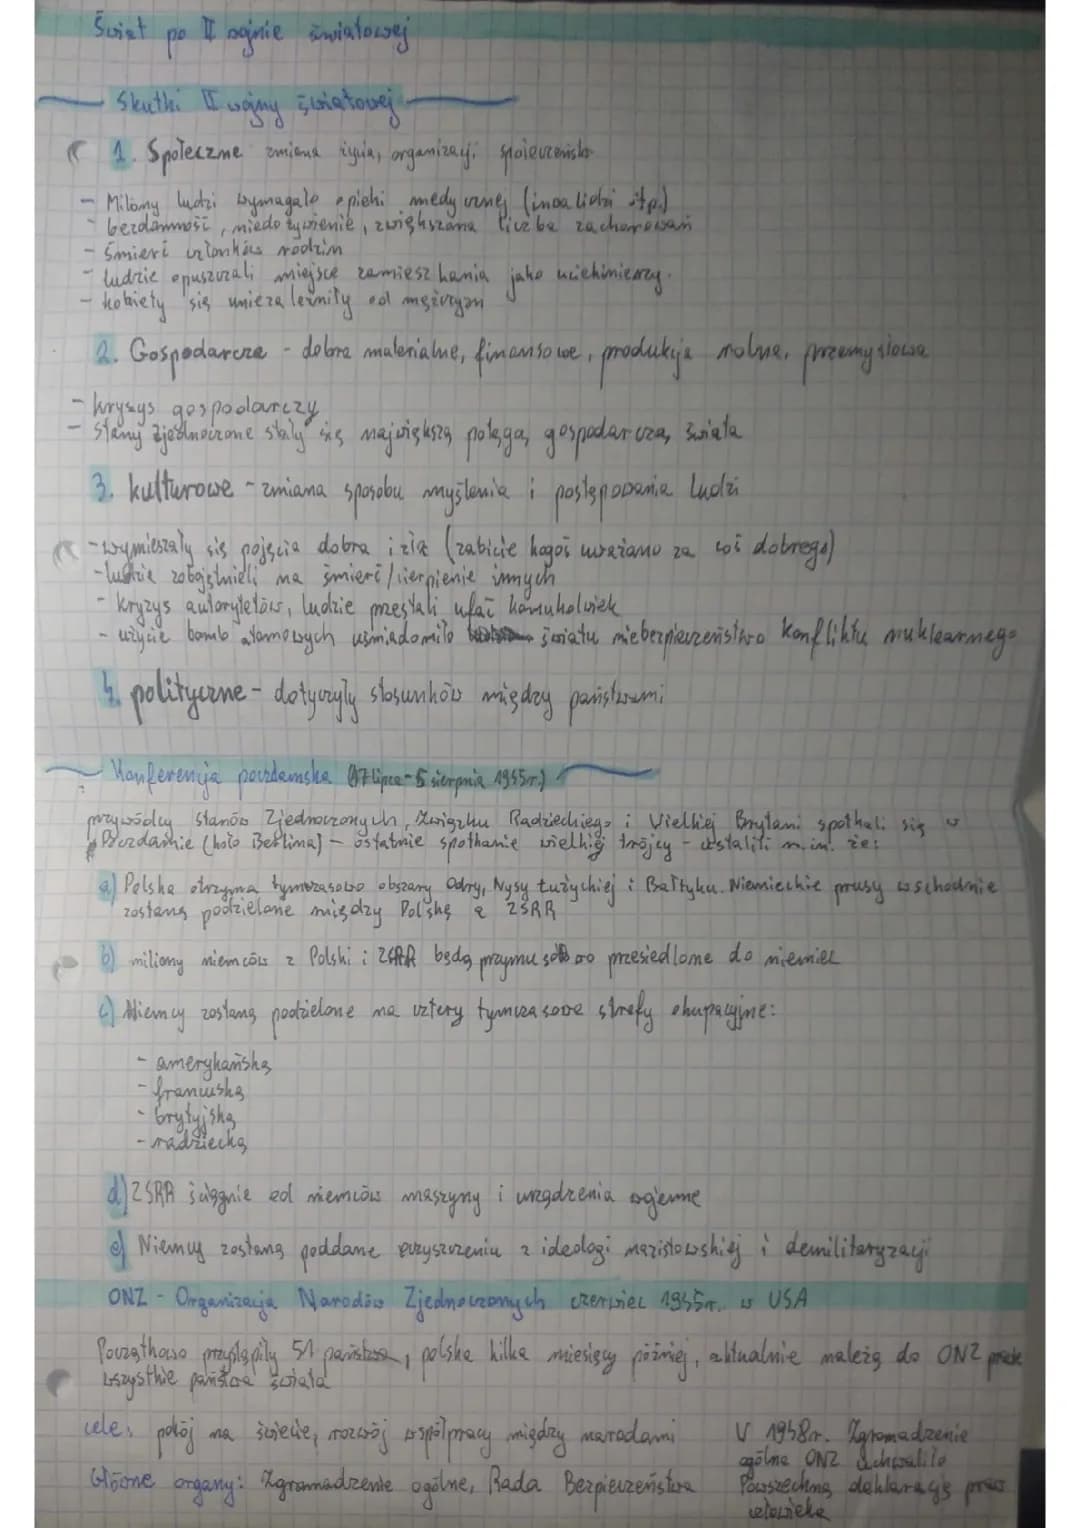 Świat po II wojnie światowej
Skutki II wojny światowej
1. Społeczne zmiana życia, organizacji społeczeństw
- Miliony ludzi wymagało opieki medycznej (inwalidzi itp.)
- bezdomność, niedożywienie, zwiększona liczba zachorowań
- śmierć członków rodzin
- ludzie opuszczali miejsce zamieszkania jako uciekinierzy.
- kobiety się uniezależniły od mężczyzn
2. Gospodarcze - dobra materialne, finansowe, produkcja rolna, przemysłowa
- kryzys gospodarczy
- Stany Zjednoczone stały się największą potęgą gospodarczą świata
3. kulturowe - zmiana sposobu myślenia i postępowania ludzi
- wymieszały się pojęcia dobra i zła (zabicie kogoś uważano za coś dobrego)
- ludzie zobojętnieli na śmierć/cierpienie innych
- kryzys autorytetów, ludzie przestali ufać komukolwiek
- użycie bomb atomowych uświadomiło światu niebezpieczeństwo konfliktu nuklearnego
4. polityczne - dotyczyły stosunków między państwami
Konferencja poczdamska (17 lipca - 5 sierpnia 1945r.)
przywódcy Stanów Zjednoczonych, Związku Radzieckiego i Wielkiej Brytani spotkali się w
Poczdamie (koło Berlina) - ostatnie spotkanie wielkiej trójcy - ustalili m.in. że:
a) Polska otrzyma tymczasowo obszary Odry, Nysy Łużyckiej i Bałtyku. Niemieckie prusy wschodnie
zostaną podzielone między Polskę a ZSRR
b) miliony niemców z Polski i ZSRR będą przymusowo przesiedlone do niemiec
c) Niemcy zostaną podzielone na cztery tymczasowe strefy okupacyjne:
- amerykańską
- francuską
- brytyjską
- radziecką
d) ZSRR ściągnie od niemców maszyny i urządzenia wojenne
e) Niemcy zostaną poddane oczyszczeniu z ideologi nazistowskiej i demilitaryzacji
ONZ - Organizacja Narodów Zjednoczonych czerwiec 1945r. w USA
Początkowo przystąpiły 51 państwa, polska kilka miesięcy później, aktualnie należą do ONZ prawie
wszystkie państwa świata
cele: pokój na świecie, rozwój współpracy między narodami
Główne organy: Zgromadzenie ogólne, Rada Bezpieczeństwa
W 1948r. Zgromadzenie
ogólne ONZ uchwaliło
Powszechną deklarację praw
człowieka